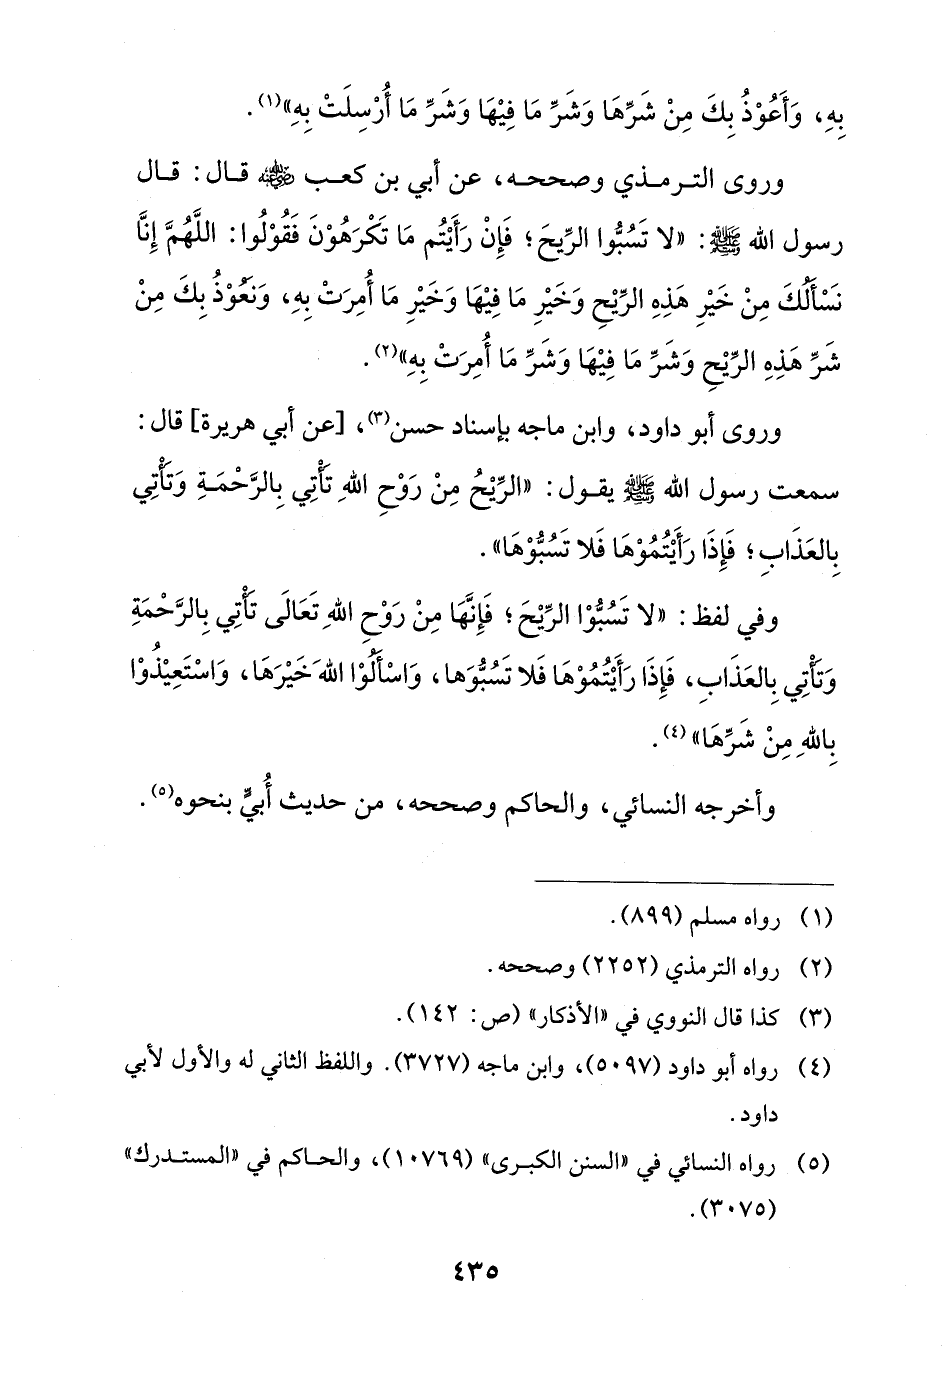 بِهِ، وَأَعُوْذُ بِكَ مِنْ شَرِّهَا وَشَرِّ مَا فِيْهَا وَشَرِّ مَا أُرْسِلَتْ بِهِ»(١).
وروى الترمذي وصححه، عن أبي بن كعب رضي الله عنه قال: قال
رسول الله ﷺ: «لا تَسُبُّوا الرِّيحَ؛ فَإِنْ رَأَيْتُم مَا تَكْرَهُوْنَ فَقُوْلُوا: اللَّهُمَّ إِنَّا
نَسْأَلُكَ مِنْ خَيْرِ هَذِهِ الرِّيْحِ وَخَيْرِ مَا فِيْهَا وَخَيْرِ مَا أُمِرَتْ بِهِ، وَنَعُوْذُ بِكَ مِنْ
شَرِّ هَذِهِ الرِّيْحِ وَشَرِّ مَا فِيْهَا وَشَرِّ مَا أُمِرَتْ بِهِ»(٢).
وروى أبو داود، وابن ماجه بإسناد حسن(٣)، [عن أبي هريرة] قال:
سمعت رسول الله ﷺ يقول: «الرِّيْحُ مِنْ رَوْحِ اللهِ تَأْتِي بِالرَّحْمَةِ وَتَأْتِي
بِالعَذَابِ؛ فَإِذَا رَأَيْتُمُوْهَا فَلا تَسُبُّوْهَا».
وفي لفظ: «لا تَسُبُّوْا الرِّيْحَ؛ فَإِنَّهَا مِنْ رَوْحِ اللهِ تَعَالَى تَأْتِي بِالرَّحْمَةِ
وَتَأْتِي بِالعَذَابِ، فَإِذَا رَأَيْتُمُوْهَا فَلا تَسُبُّوَها، وَاسْأَلُوْا اللهَ خَيْرَهَا، وَاسْتَعِيْذُوْا
بِاللهِ مِنْ شَرِّهَا»(٤).
وأخرجه النسائي، والحاكم وصححه، من حديث أُبيٍّ بنحوه(٥).
(١) رواه مسلم (٨٩٩).
(٢) رواه الترمذي (٢٢٥٢) وصححه.
(٣) كذا قال النووي في «الأذكار» (ص: ١٤٢).
(٤) رواه أبو داود (٥٠٩٧)، وابن ماجه (٣٧٢٧). واللفظ الثاني له والأول لأبي
داود.
(٥) رواه النسائي في «السنن الكبرى» (١٠٧٦٩)، والحاكم في «المستدرك»
(٣٠٧٥).
٤٣٥